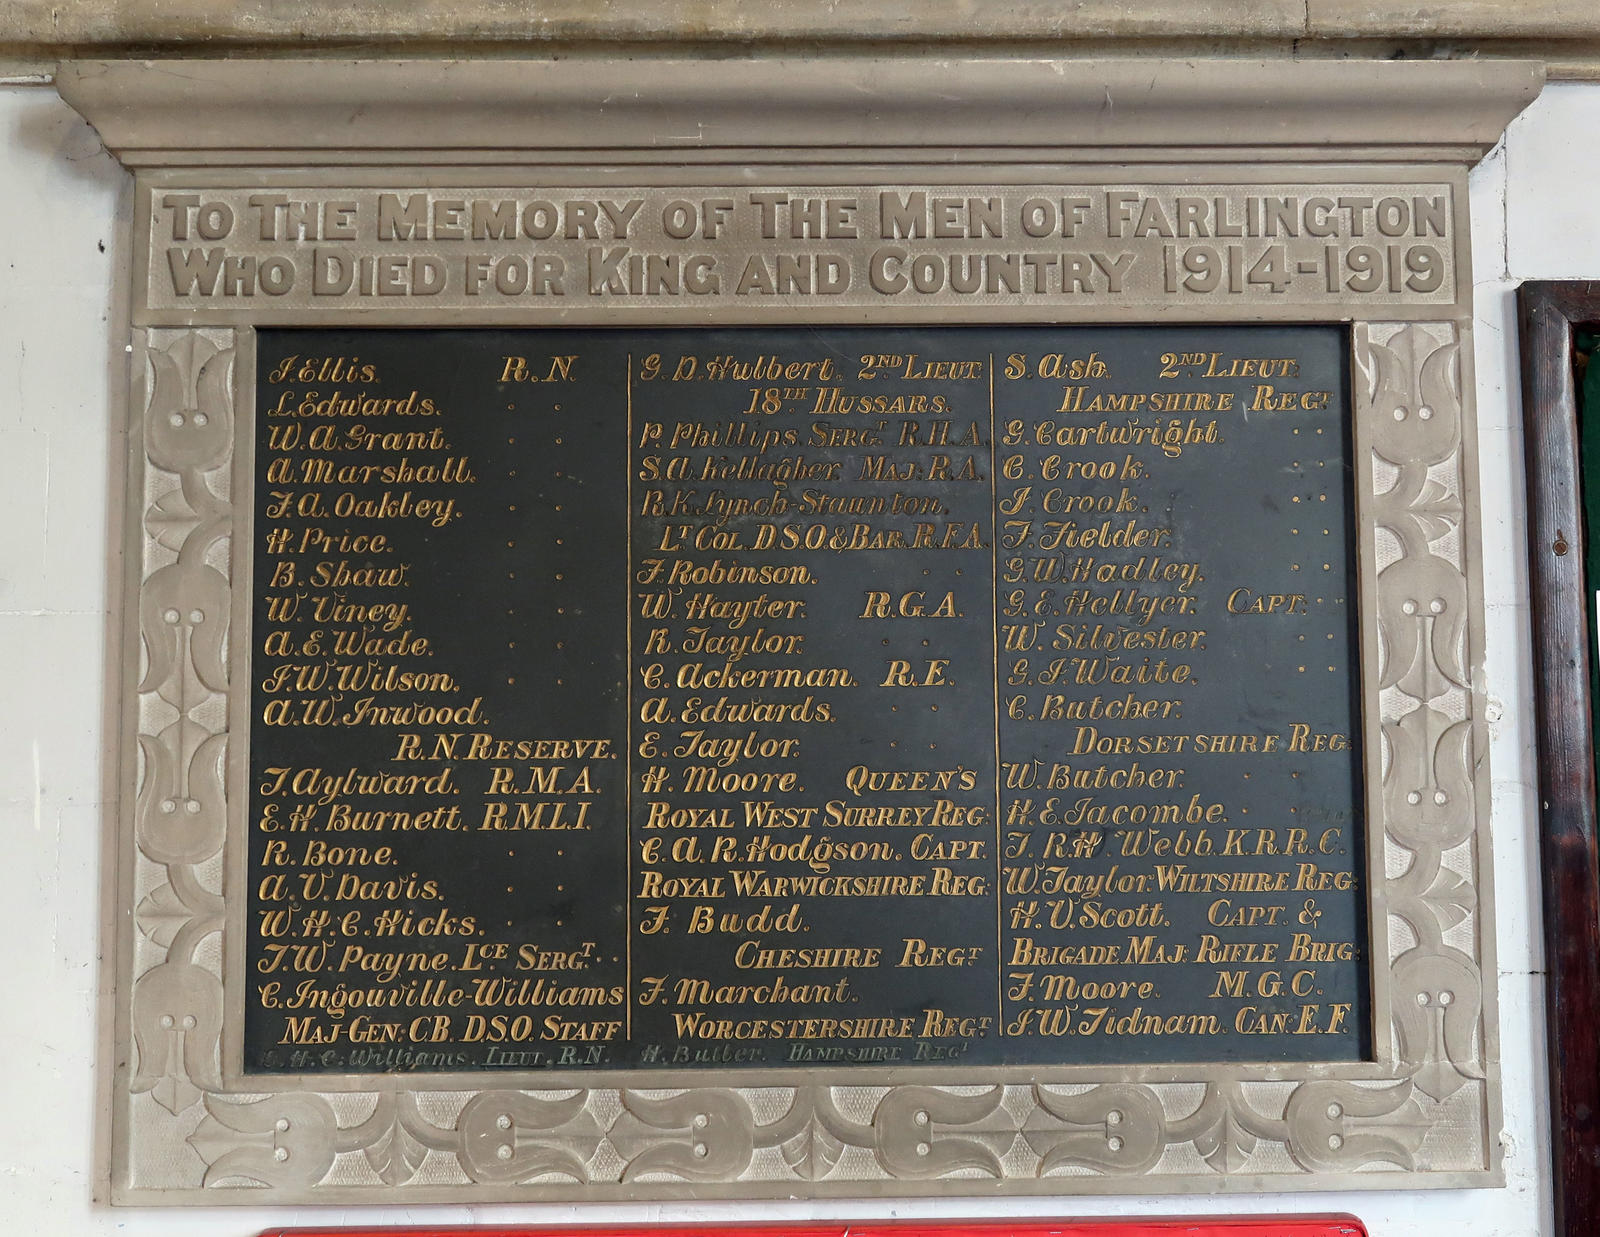 TO THE MEMORY OF THE MEN OF FARLINGTON
WHO DIED FOR KING AND COUNTRY 1914-1919
J. Ellis. R.N.
L. Edwards. " "
W. A. Grant. " "
A. Marshall. " "
F. A. Oakley. " "
H. Price. " "
B. Shaw. " "
W. Viney. " "
A. E. Wade. " "
J. W. Wilson. " "
A. W. Inwood.
R. N. RESERVE.
T. Aylward. R.M.A.
E. H. Burnett. R.M.L.I.
R. Bone. " "
A. V. Davis. " "
W. H. C. Hicks. " "
J. W. Payne. LCE SERGT. " "
C. Ingouville-Williams
MAJ-GEN: C.B. D.S.O. STAFF
H. C. Williams. LIEUT. R.N.
G. D. Hulbert. 2ND LIEUT.
18TH HUSSARS.
P. Phillips. SERGT. R.H.A.
S. A. Kellagher MAJ: R.A.
R. K. Lynch-Staunton.
LT COL. D.S.O. & BAR. R.F.A.
F. Robinson. " "
W. Hayter. R.G.A.
R. Taylor. " "
C. Ackerman. R.E.
A. Edwards. " "
E. Taylor. " "
H. Moore. QUEEN'S
ROYAL WEST SURREY REG:
C. A. R. Hodgson. CAPT.
ROYAL WARWICKSHIRE REG:
F. Budd.
CHESHIRE REGT
F. Marchant.
WORCESTERSHIRE REGT
H. Butler. HAMPSHIRE REGT
S. Ash. 2ND LIEUT.
HAMPSHIRE REGT
G. Cartwright. " "
C. Crook.
J. Crook. " "
F. Fielder. " "
G. W. Hadley. " "
G. E. Hellyer. CAPT: " "
W. Silvester. " "
G. J. Waite. " "
C. Butcher.
DORSETSHIRE REG:
W. Butcher. " "
H. E. Jacombe. "
T. R. H. Webb. K.R.R.C.
W. Taylor. WILTSHIRE REG:
H. V. Scott. CAPT. &
BRIGADE MAJ: RIFLE BRIG:
F. Moore. M.G.C.
J. W. Tidnam. CAN: E.F.